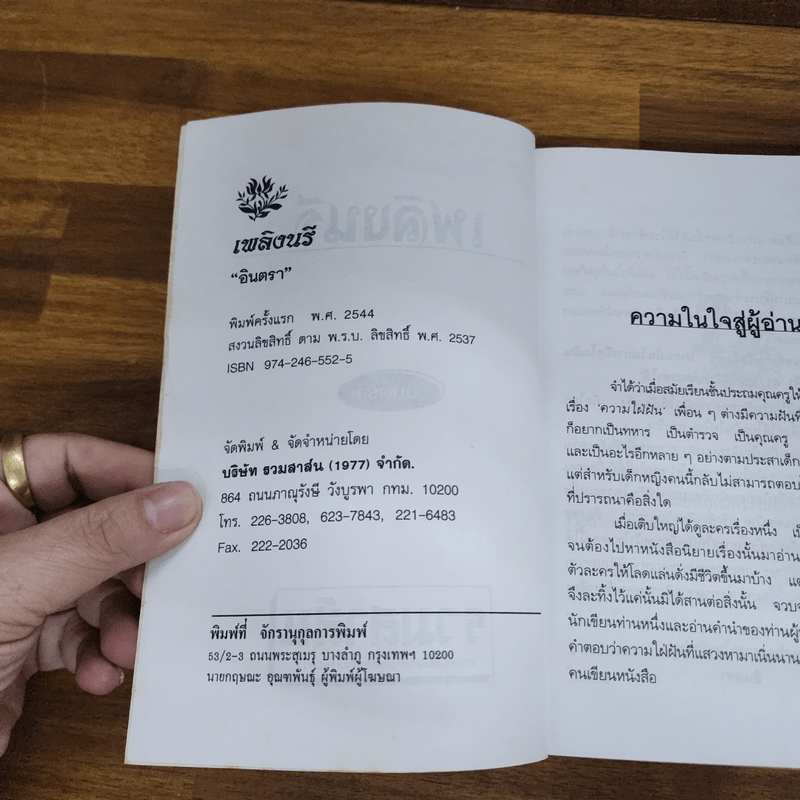 เพลิงนรี
“อินตรา”
พิมพ์ครั้งแรก พ.ศ. 2544
สงวนลิขสิทธิ์ ตาม พ.ร.บ. ลิขสิทธิ์ พ.ศ. 2537
ISBN 974-246-552-5
จัดพิมพ์ & จัดจำหน่ายโดย
บริษัท รวมสาส์น (1977) จำกัด.
864 ถนนภาณุรังษี วังบูรพา กทม. 10200
โทร. 226-3808, 623-7843, 221-6483
Fax. 222-2036
พิมพ์ที่ จักรานุกูลการพิมพ์
53/2-3 ถนนพระสุเมรุ บางลำภู กรุงเทพฯ 10200
นายกฤษณะ อุณฑพันธุ์ ผู้พิมพ์ผู้โฆษณา
ความในใจสู่ผู้อ่าน
จำได้ว่าเมื่อสมัยเรียนชั้นประถมคุณครูให้
เรื่อง ‘ความใฝ่ฝัน’ เพื่อน ๆ ต่างมีความฝันที่
ก็อยากเป็นทหาร เป็นตำรวจ เป็นคุณครู
และเป็นอะไรอีกหลาย ๆ อย่างตามประสาเด็ก
แต่สำหรับเด็กหญิงคนนี้กลับไม่สามารถตอบ
ที่ปรารถนาคือสิ่งใด
เมื่อเติบใหญ่ได้ดูละครเรื่องหนึ่ง
จนต้องไปหาหนังสือนิยายเรื่องนั้นมาอ่าน
ตัวละครให้โลดแล่นดั่งมีชีวิตขึ้นมาบ้าง
จึงละทิ้งไว้แค่นั้นมิได้สานต่อสิ่งนั้น
นักเขียนท่านหนึ่งและอ่านคำนำของท่านผู้
คำตอบว่าความใฝ่ฝันที่แสวงหามาเนิ่นนาน
คนเขียนหนังสือ